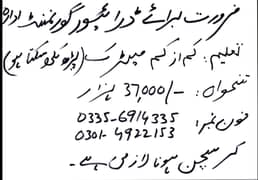 ضرورت برائے ڈرائیور گورنمنٹ ادارہ
تعلیم: کم از کم میٹرک (پڑھ لکھ سکتا ہو)
تنخواہ: /-37,000 ہزار
فون نمبر: 0335-6914335
0301-4922153
کرسچن ہونا لازمی ہے۔